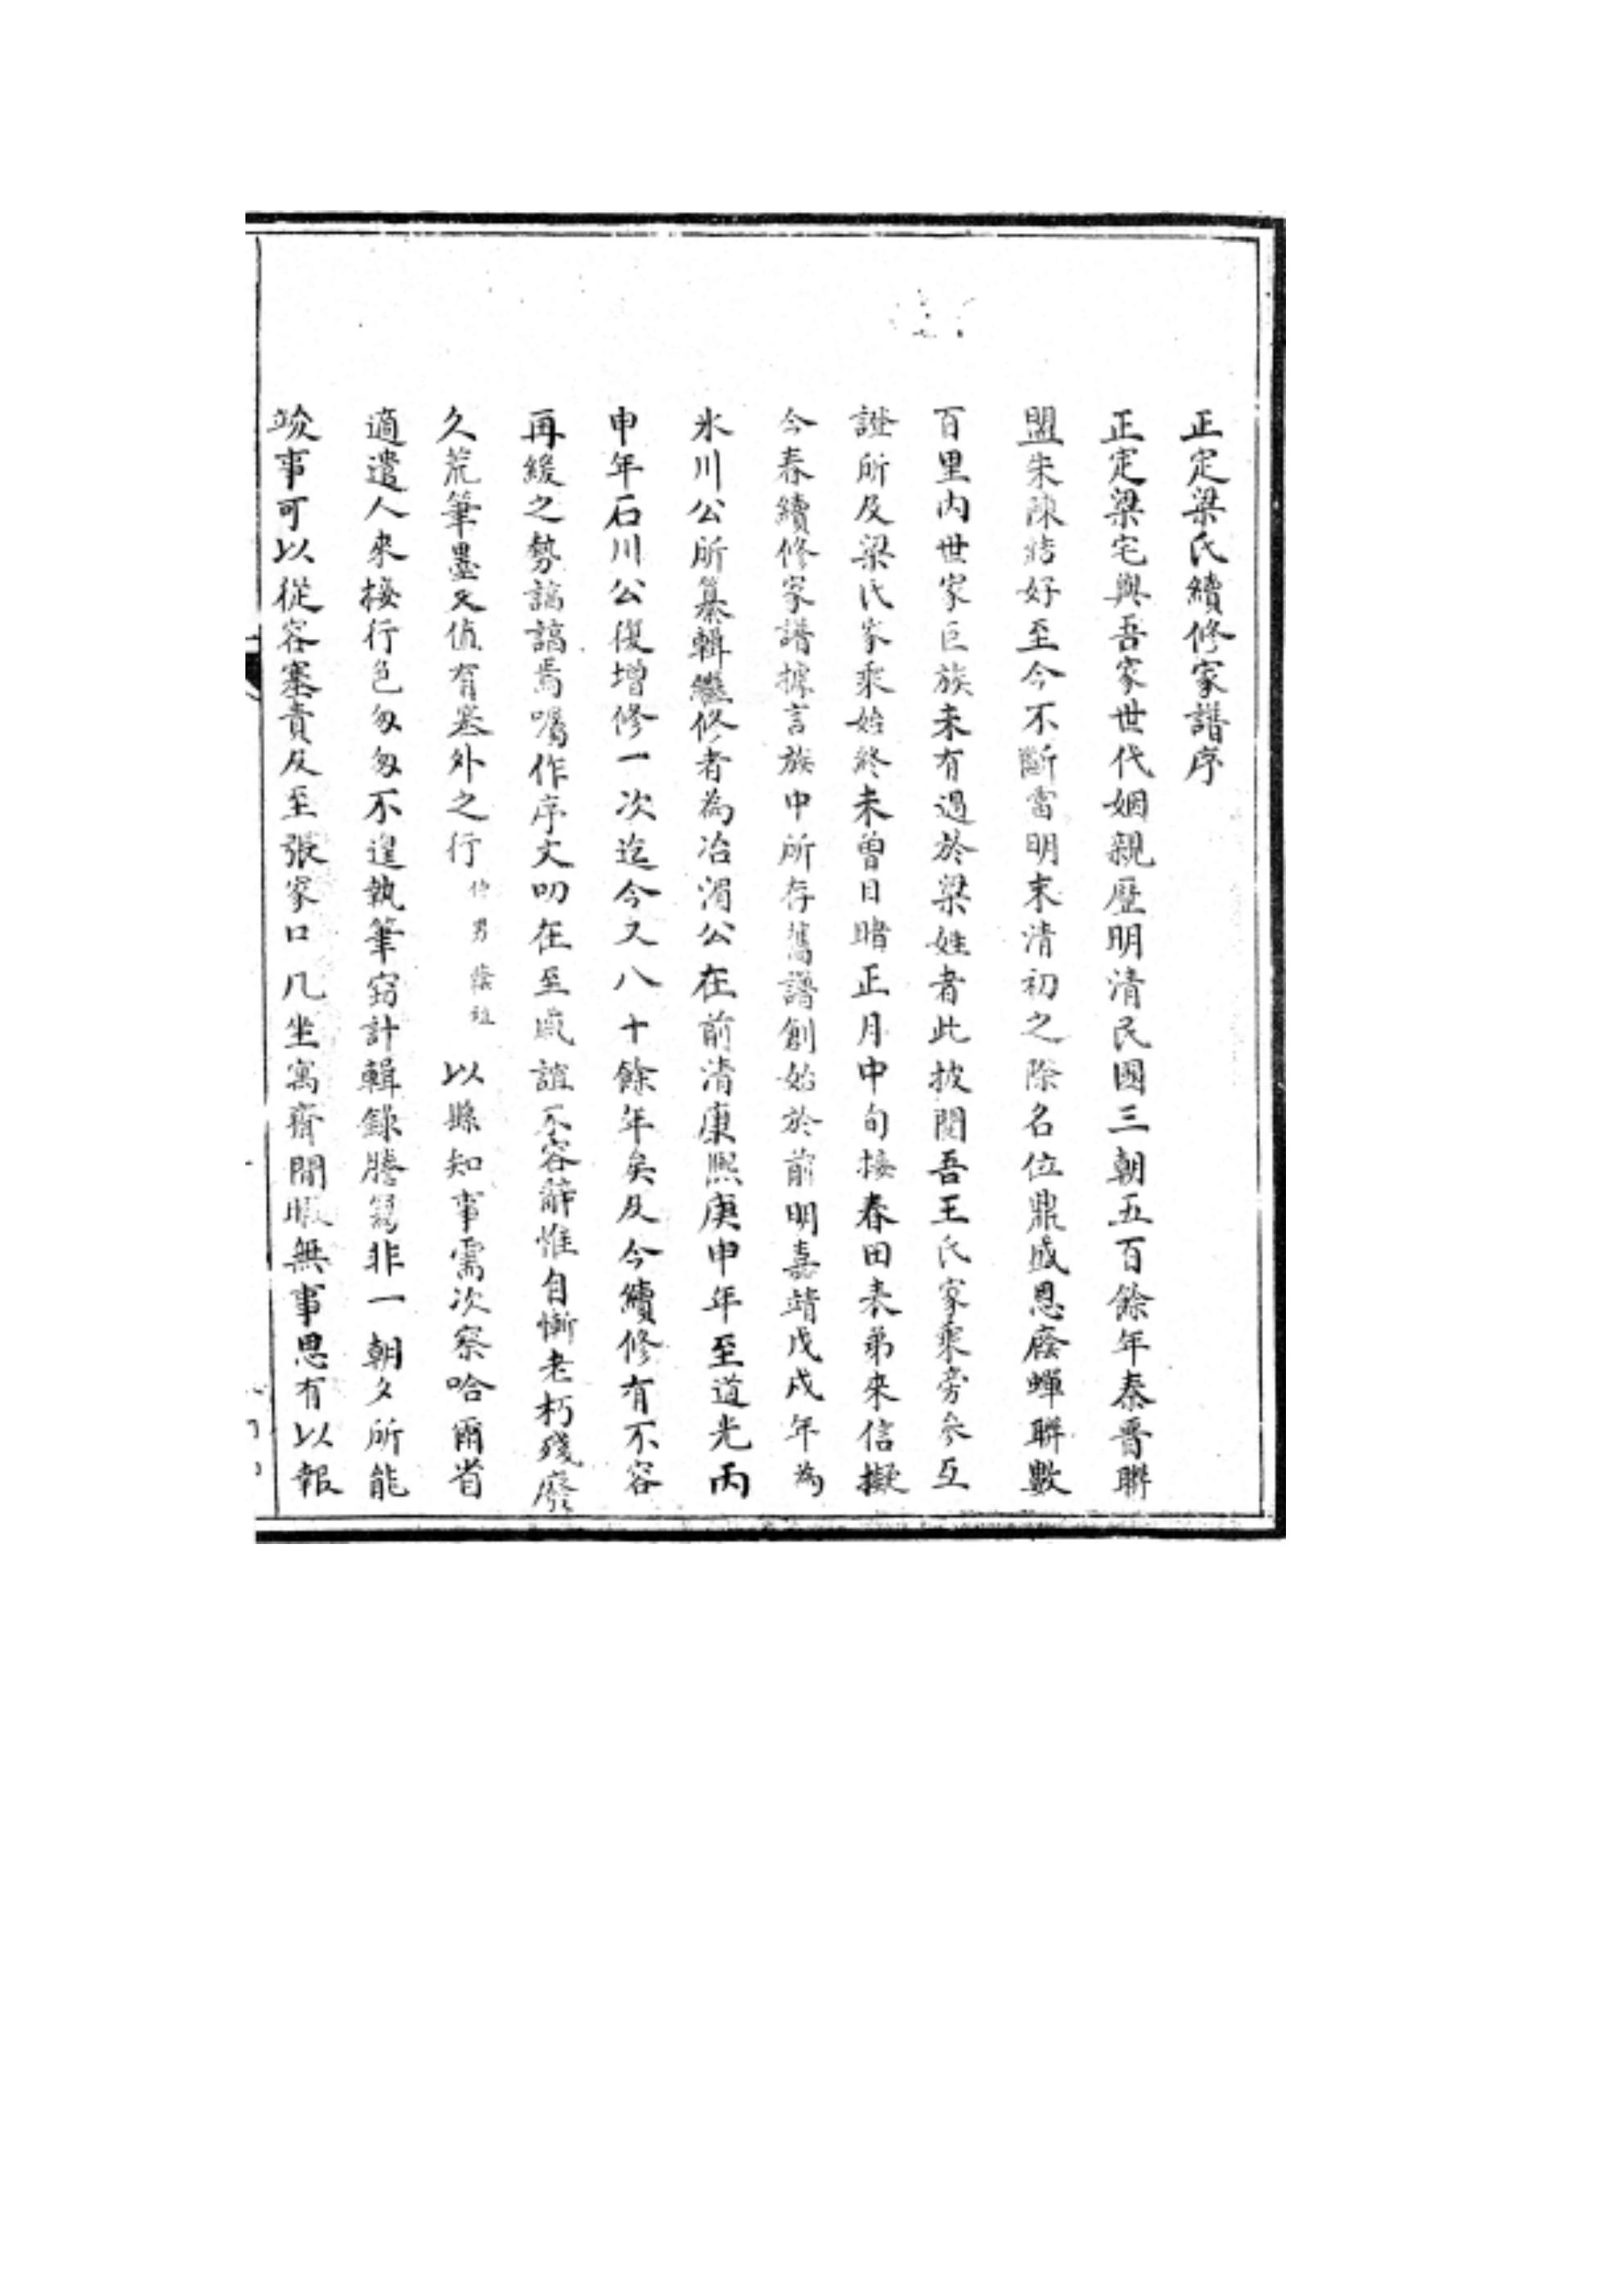 正定梁氏續修家譜序
正定梁宅與吾家世代姻親歷明清民國三朝五百餘年秦晉聯
盟朱陳結好至今不斷當明末清初之際名位鼎盛恩廕蟬聯數
百里內世家巨族未有過於梁姓者此披閱吾王氏家乘旁參互
證所及梁氏家乘始終未曾目睹正月中旬接春田表弟來信擬
今春續修家譜據言族中所存舊譜創始於前明嘉靖戊戌年為
氷川公所纂輯繼修者為冶湄公在前清康熙庚申年至道光丙
申年石川公復增修一次迄今又八十餘年矣及今續修有不容
再緩之勢諄諄焉囑作序文叨在至戚誼不容辭惟自慚老朽殘廢
久荒筆墨又值有塞外之行仲男蔭祖以縣知事需次察哈爾省
適遣人來接行色匆匆不遑執筆窃計輯錄謄寫非一朝夕所能
竣事可以從容塞責及至張家口几坐寓齋閒暇無事思有以報